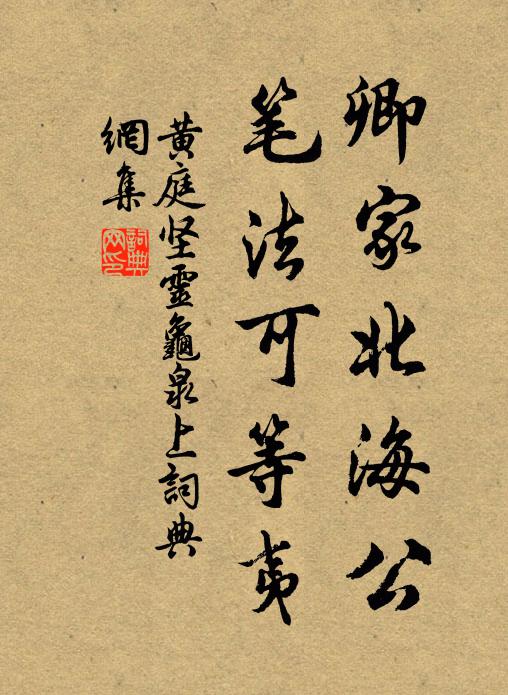 卿家北海公
笔法可等夷
黄庭坚靈龜泉上詞典
網集
詞典
网印